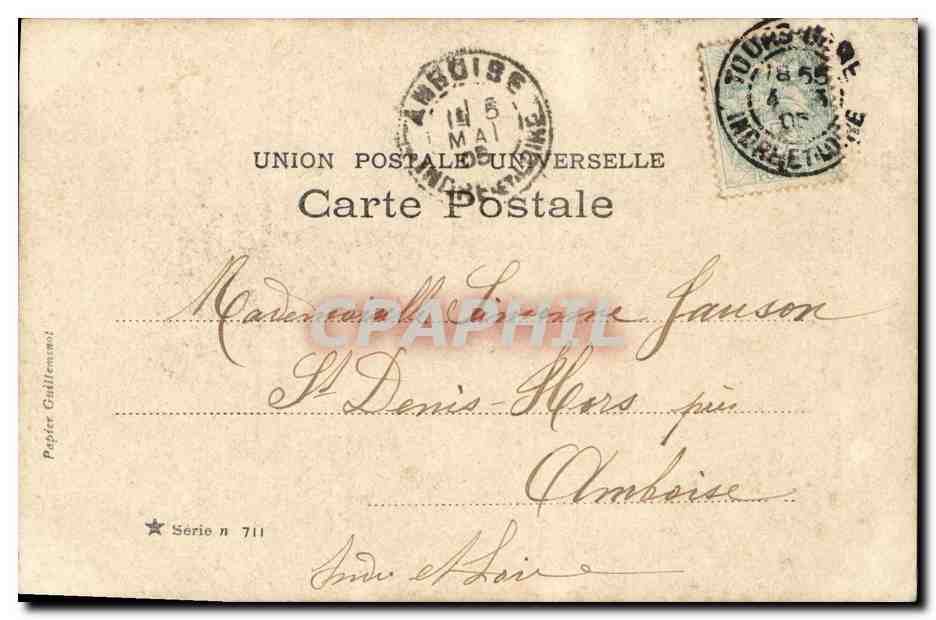 AMBOISE
5
MAI
05
INDRE-ET-LOIRE
18 55
4
05
INDRE-ET-LOIRE
UNION POSTALE UNIVERSELLE
Carte Postale
CPAPHIL
Mademoiselle Janson
St Denis-Hors près
Amboise
Indre et Loire
Papier Guilleminot
Série n 711